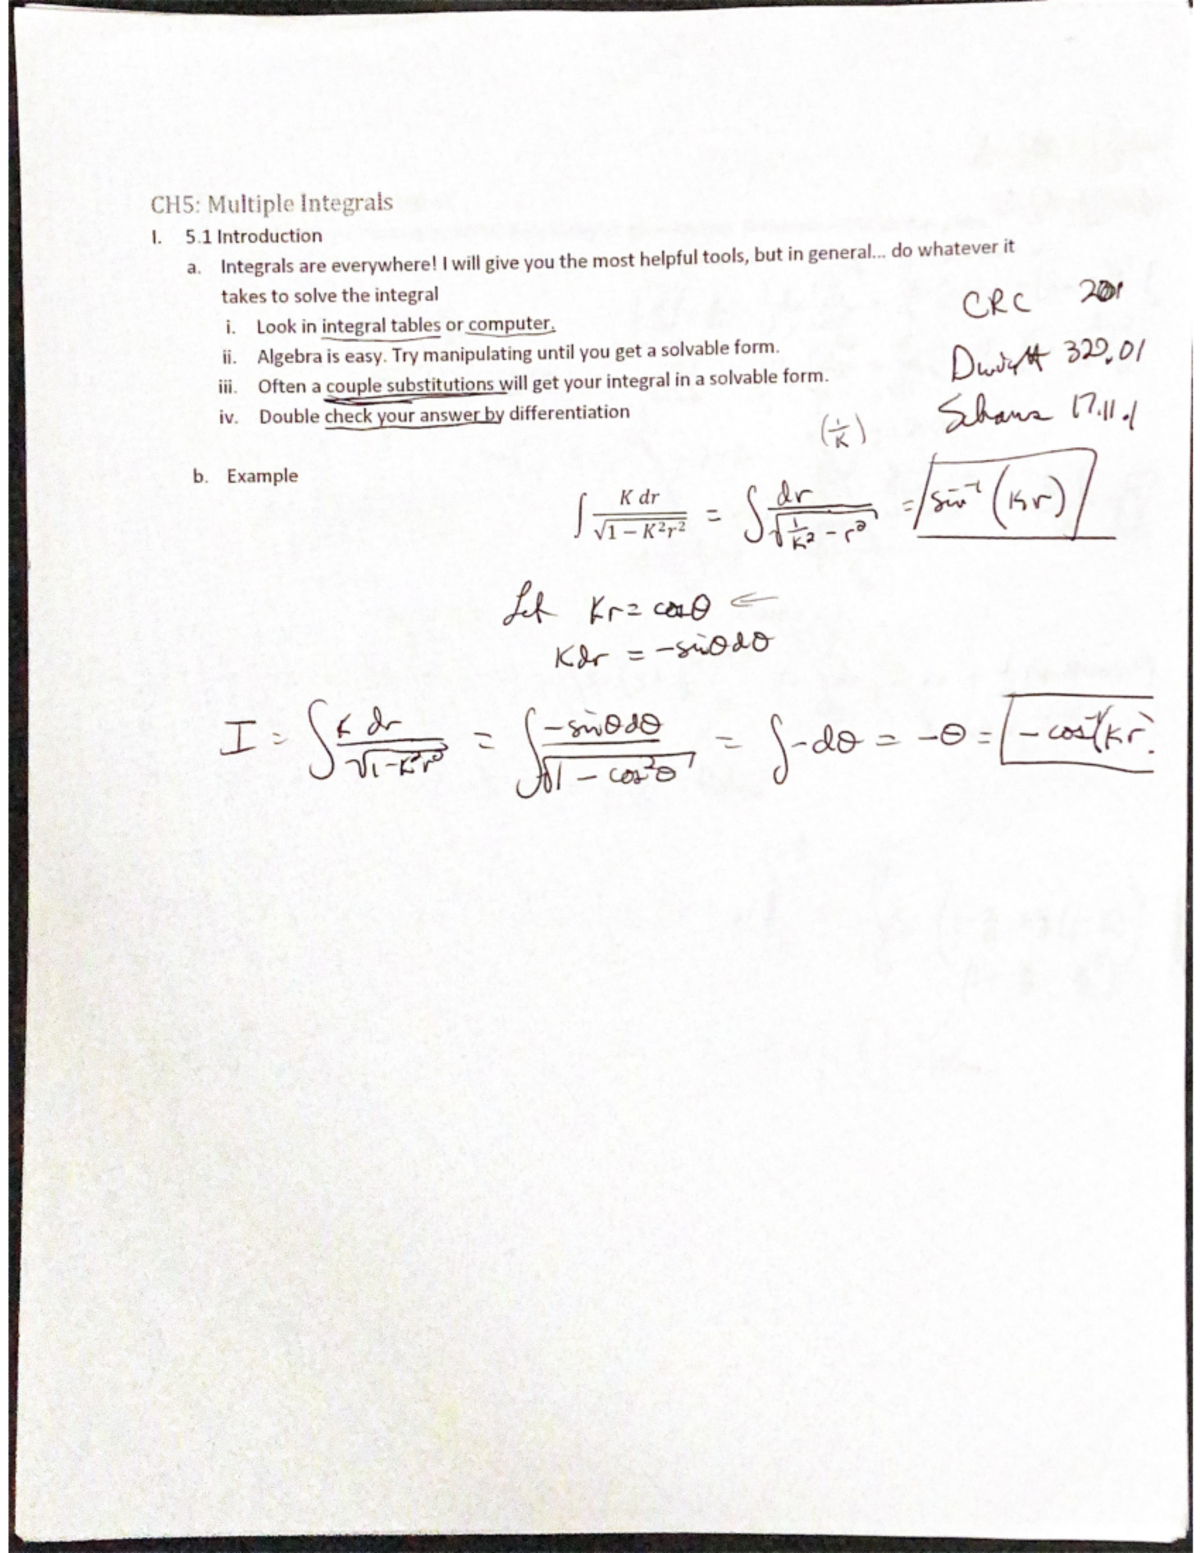 CH5: Multiple Integrals
I. 5.1 Introduction
a. Integrals are everywhere! I will give you the most helpful tools, but in general... do whatever it
takes to solve the integral
i. Look in integral tables or computer.
ii. Algebra is easy. Try manipulating until you get a solvable form.
iii. Often a couple substitutions will get your integral in a solvable form.
iv. Double check your answer by differentiation
CRC 201
Dwight 320.01
Schaums 17.11.1
(1/K)
b. Example
∫ K dr / √(1 − K²r²) = ∫ dr / √(1/K² − r²) = sin⁻¹(Kr)
Let Kr = cosθ ⇐
Kdr = −sinθdθ
I = ∫ K dr / √(1−K²r²) = ∫ −sinθdθ / √(1 − cos²θ) = ∫−dθ = −θ = −cos⁻¹(Kr)